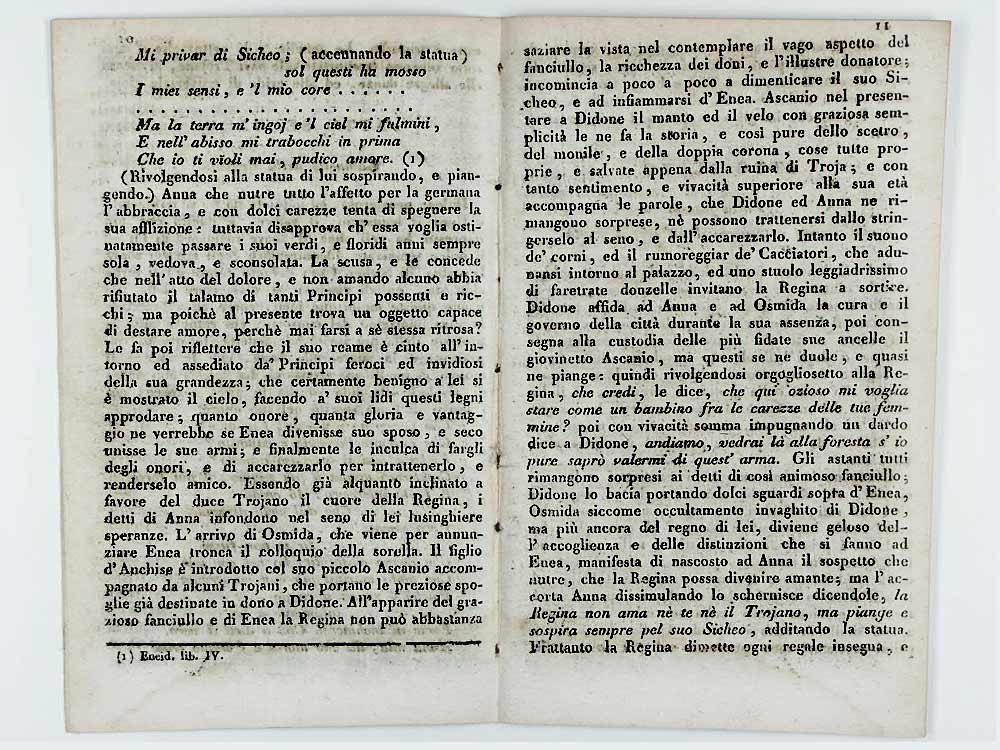 10
Mi privar di Sicheo; (accennando la statua)
sol questi ha mosso
I miei sensi, e 'l mio core . . . . . .
. . . . . . . . . . . . . . . . . . . . . .
Ma la terra m'ingoj e 'l ciel mi fulmini,
E nell' abisso mi trabocchi in prima
Che io ti violi mai, pudico amore. (1)
(Rivolgendosi alla statua di lui sospirando, e pian-
gendo.) Anna che nutre tutto l'affetto per la germana
l'abbraccia, e con dolci carezze tenta di spegnere la
sua afflizione: tuttavia disapprova ch' essa voglia osti-
natamente passare i suoi verdi, e floridi anni sempre
sola, vedova, e sconsolata. La scusa, e le concede
che nell' atto del dolore, e non amando alcuno abbia
rifiutato il talamo di tanti Principi possenti e ric-
chi; ma poichè al presente trova un oggetto capace
di destare amore, perchè mai farsi a sè stessa ritrosa?
Le fa poi riflettere che il suo reame è cinto all' in-
torno ed assediato da' Principi feroci ed invidiosi
della sua grandezza; che certamente benigno a lei si
è mostrato il cielo, facendo a' suoi lidi questi legni
approdare; quanto onore, quanta gloria e vantag-
gio ne verrebbe se Enea divenisse suo sposo, e seco
unisse le sue armi; e finalmente le inculca di fargli
degli onori, e di accarezzarlo per intrattenerlo, e
renderselo amico. Essendo già alquanto inclinato a
favore del duce Trojano il cuore della Regina, i
detti di Anna infondono nel seno di lei lusinghiere
speranze. L' arrivo di Osmida, che viene per annun-
ziare Enea tronca il colloquio della sorella. Il figlio
d'Anchise è introdotto col suo piccolo Ascanio accom-
pagnato da alcuni Trojani, che portano le preziose spo-
glie già destinate in dono a Didone. All'apparire del gra-
zioso fanciullo e di Enea la Regina non può abbastanza
(1) Eneid. lib. IV.
11
saziare la vista nel contemplare il vago aspetto del
fanciullo, la ricchezza dei doni, e l'illustre donatore;
incomincia a poco a poco a dimenticare il suo Si-
cheo, e ad infiammarsi d' Enea. Ascanio nel presen-
tare a Didone il manto ed il velo con graziosa sem-
plicità le ne fa la storia, e così pure dello scetro,
del monile, e della doppia corona, cose tutte pro-
prie, e salvate appena dalla ruina di Troja; e con
tanto sentimento, e vivacità superiore alla sua età
accompagna le parole, che Didone ed Anna ne ri-
mangono sorprese, nè possono trattenersi dallo strin-
gerselo al seno, e dall'accarezzarlo. Intanto il suono
de' corni, ed il rumoreggiar de' Cacciatori, che adu-
nansi intorno al palazzo, ed uno stuolo leggiadrissimo
di faretrate donzelle invitano la Regina a sortire.
Didone affida ad Anna e ad Osmida la cura e il
governo della città durante la sua assenza, poi con-
segna alla custodia delle più fidate sue ancelle il
giovinetto Ascanio, ma questi se ne duole, e quasi
ne piange: quindi rivolgendosi orgogliosetto alla Re-
gina, che credi, le dice, che quì ozioso mi voglia
stare come un bambino fra le carezze delle tue fem-
mine? poi con vivacità somma impugnando un dardo
dice a Didone, andiamo, vedrai là alla foresta s' io
pure saprò valermi di quest' arma. Gli astanti tutti
rimangono sorpresi ai detti di così animoso fanciullo;
Didone lo bacia portando dolci sguardi sopra d' Enea,
Osmida siccome occultamente invaghito di Didone,
ma più ancora del regno di lei, diviene geloso del-
l' accoglienza e delle distinzioni che si fanno ad
Enea, manifesta di nascosto ad Anna il sospetto che
nutre, che la Regina possa divenire amante; ma l' ac-
corta Anna dissimulando lo schernisce dicendole, la
Regina non ama nè te nè il Trojano, ma piange e
sospira sempre pel suo Sicheo, additando la statua.
Frattanto la Regina dimette ogni regale insegna, e